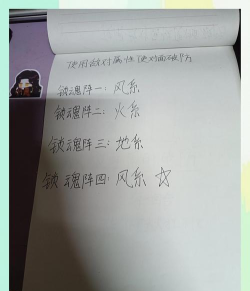 使用敌对属性使对面破防
锁魂阵一：风系
锁魂阵二：火系
锁魂阵三：地系
锁魂阵四：风系 ☆